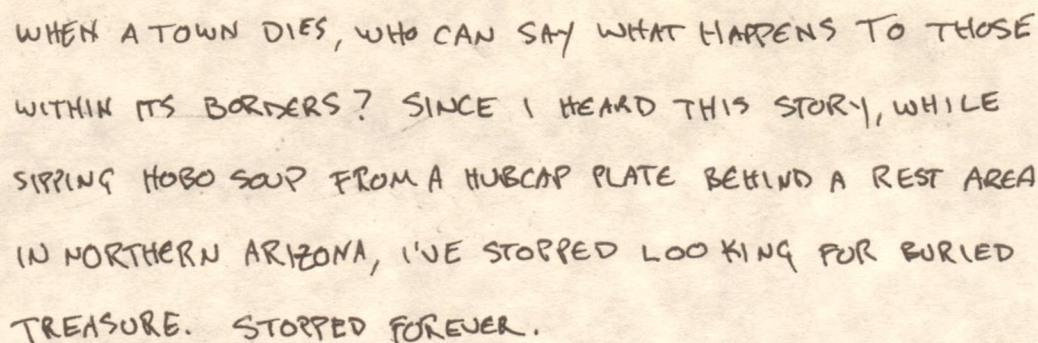 WHEN A TOWN DIES, WHO CAN SAY WHAT HAPPENS TO THOSE
WITHIN ITS BORDERS? SINCE I HEARD THIS STORY, WHILE
SIPPING HOBO SOUP FROM A HUBCAP PLATE BEHIND A REST AREA
IN NORTHERN ARIZONA, I'VE STOPPED LOOKING FOR BURIED
TREASURE. STOPPED FOREVER.